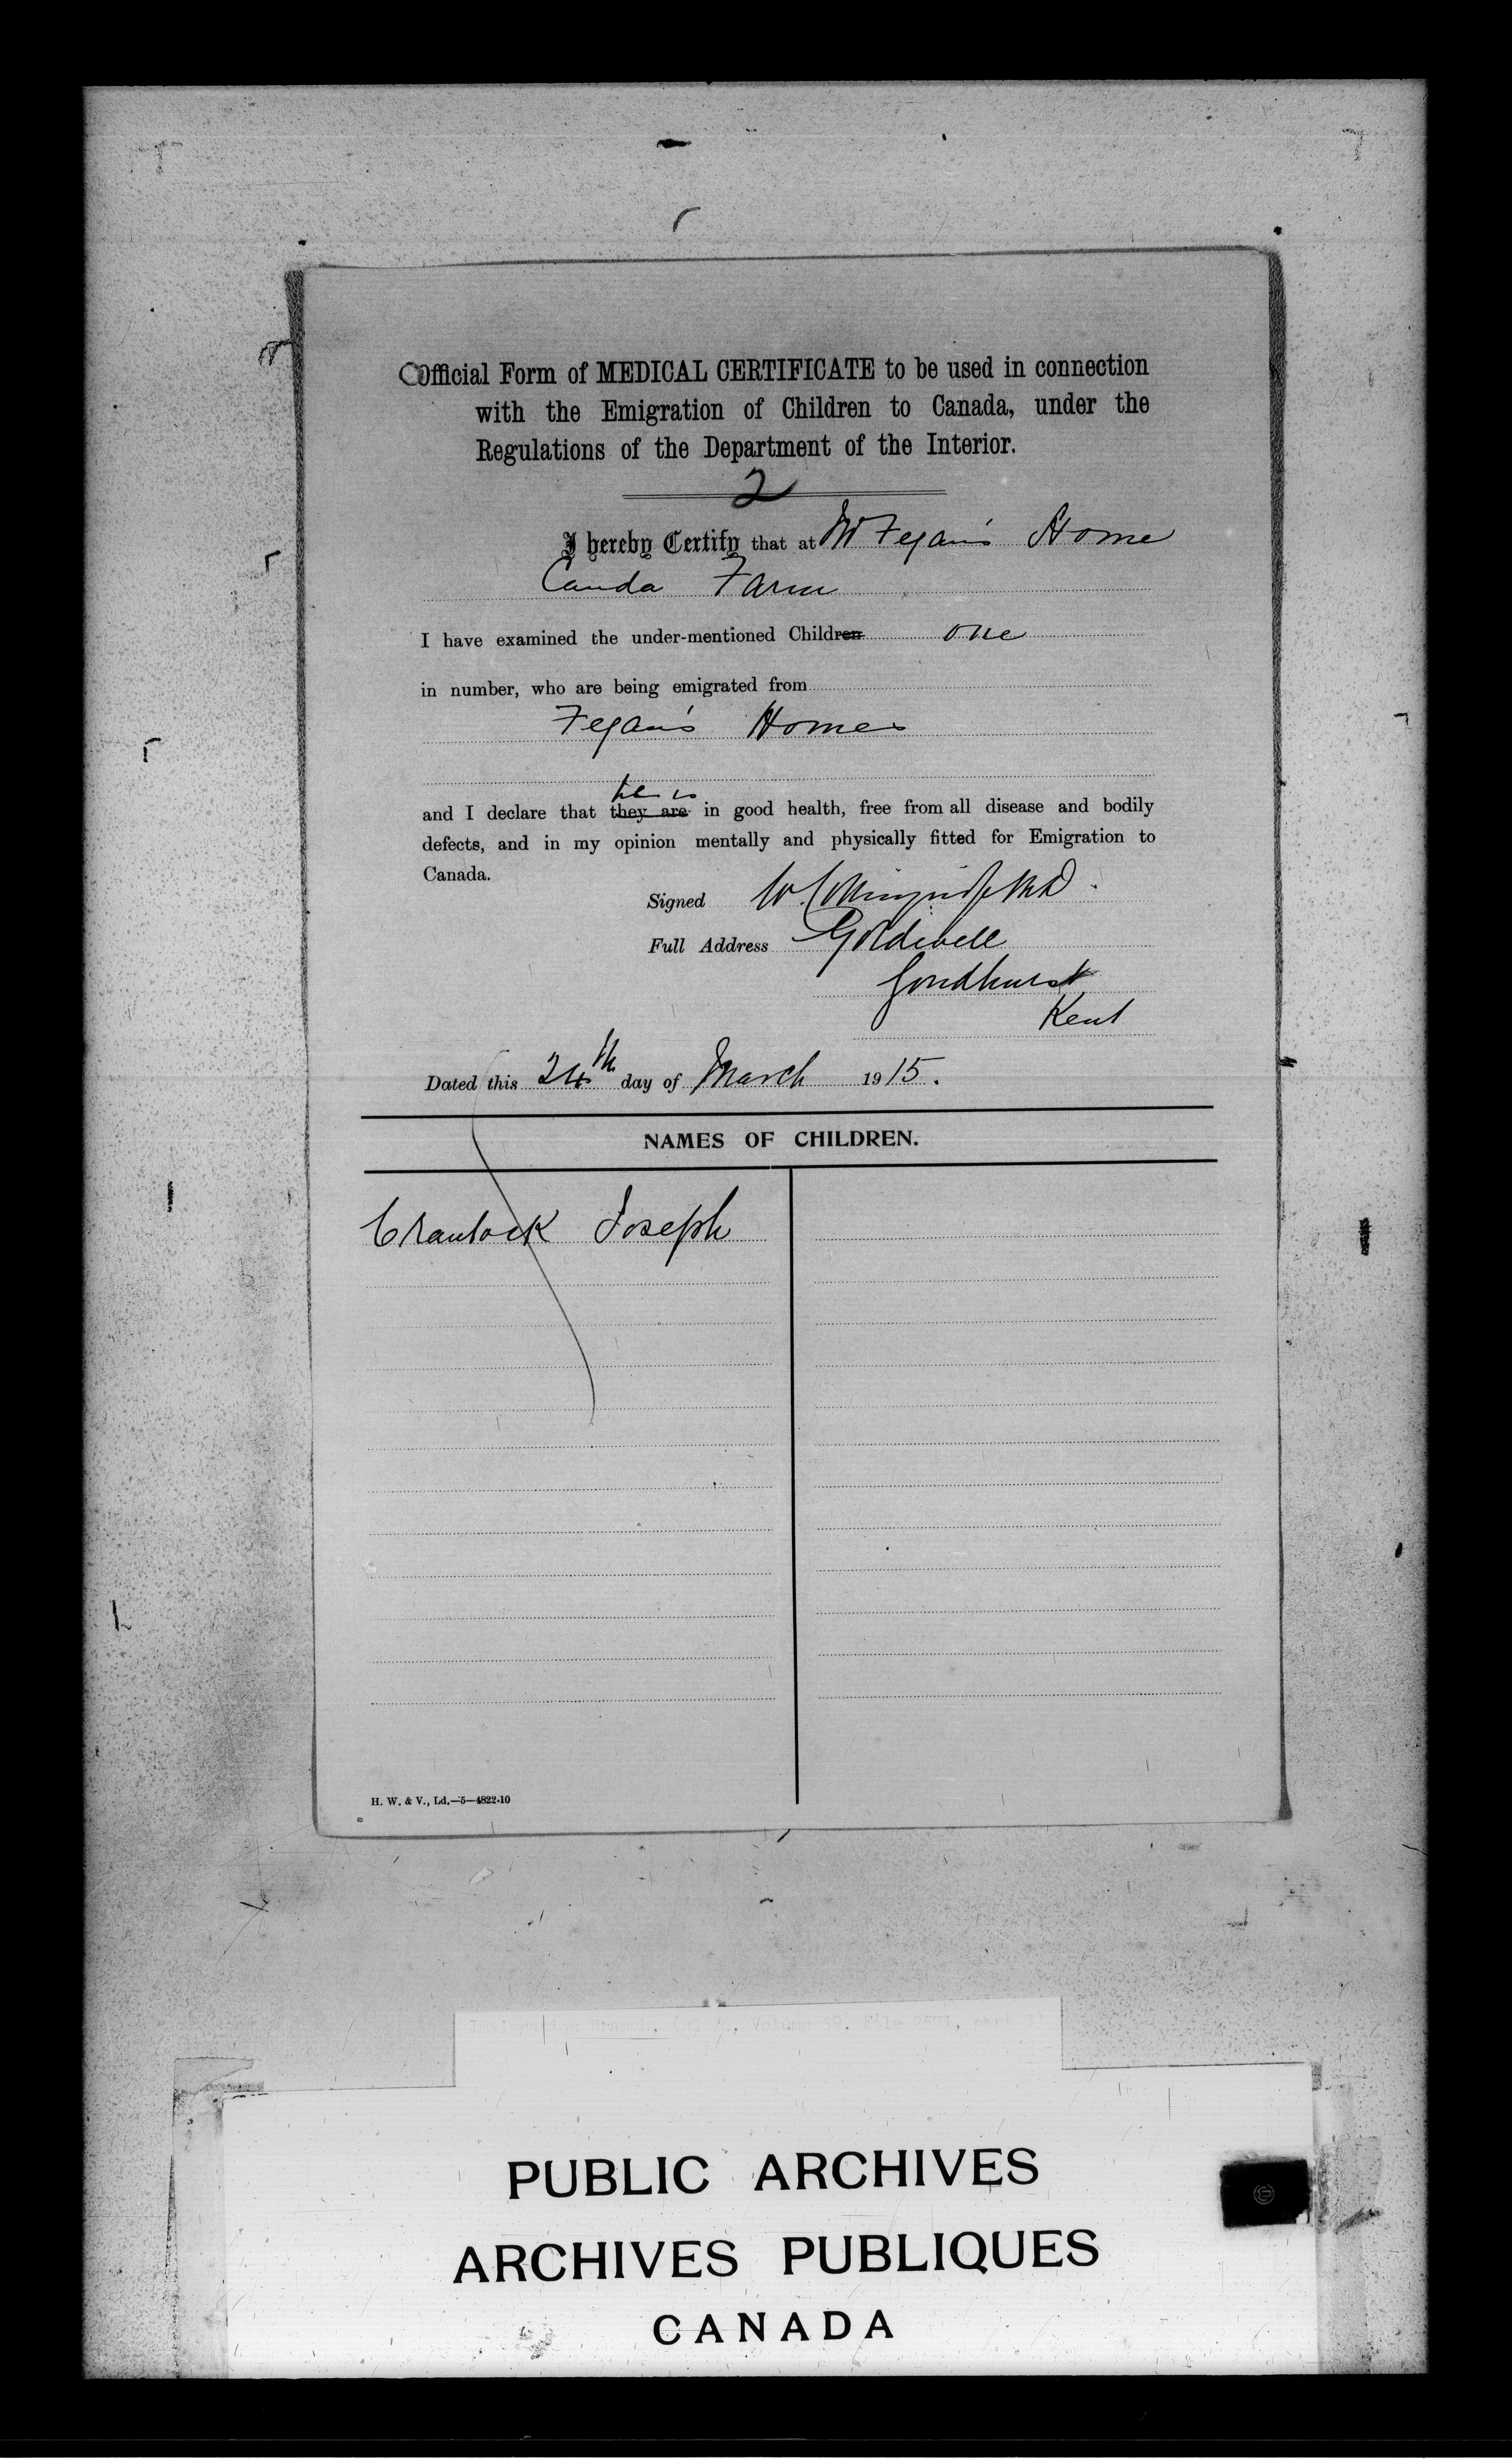 Official Form of MEDICAL CERTIFICATE to be used in connection
with the Emigration of Children to Canada, under the
Regulations of the Department of the Interior.
2
I hereby Certify that at Mr Fegan's Home
Canda Farm
I have examined the under-mentioned Children one
in number, who are being emigrated from
Fegan's Homes
he is
and I declare that they are in good health, free from all disease and bodily
defects, and in my opinion mentally and physically fitted for Emigration to
Canada.
Signed W. MD.
Full Address Goldwell
Goudhurst
Kent
Dated this 24th day of March 1915.
NAMES OF CHILDREN.
Joseph
H. W. & V., Ld.—5—4822-10
PUBLIC ARCHIVES
ARCHIVES PUBLIQUES
CANADA